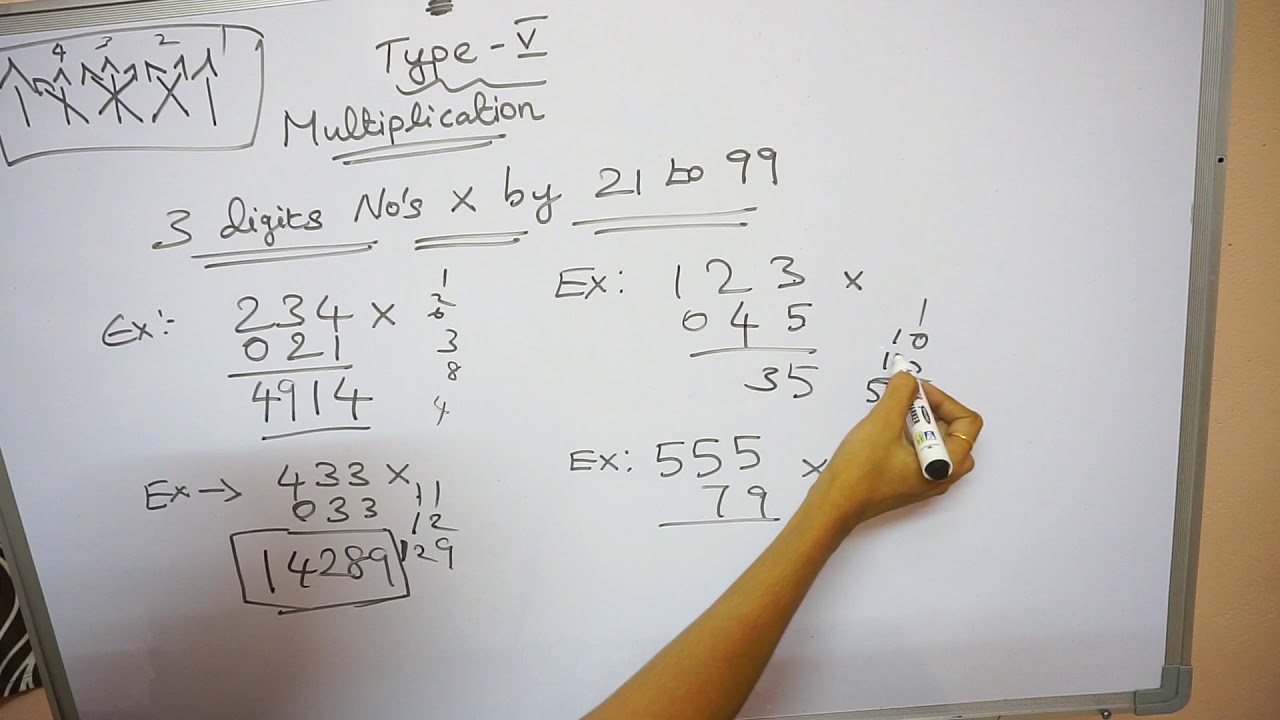 4 3 2 1
Type - V
Multiplication
3 digits No's x by 21 to 99
Ex:- 234 x
021
4914
1
2
6
3
8
4
Ex → 433 x
033
14289
11
12
129
Ex: 123 x
045
35
1
10
5
Ex: 555 x
79